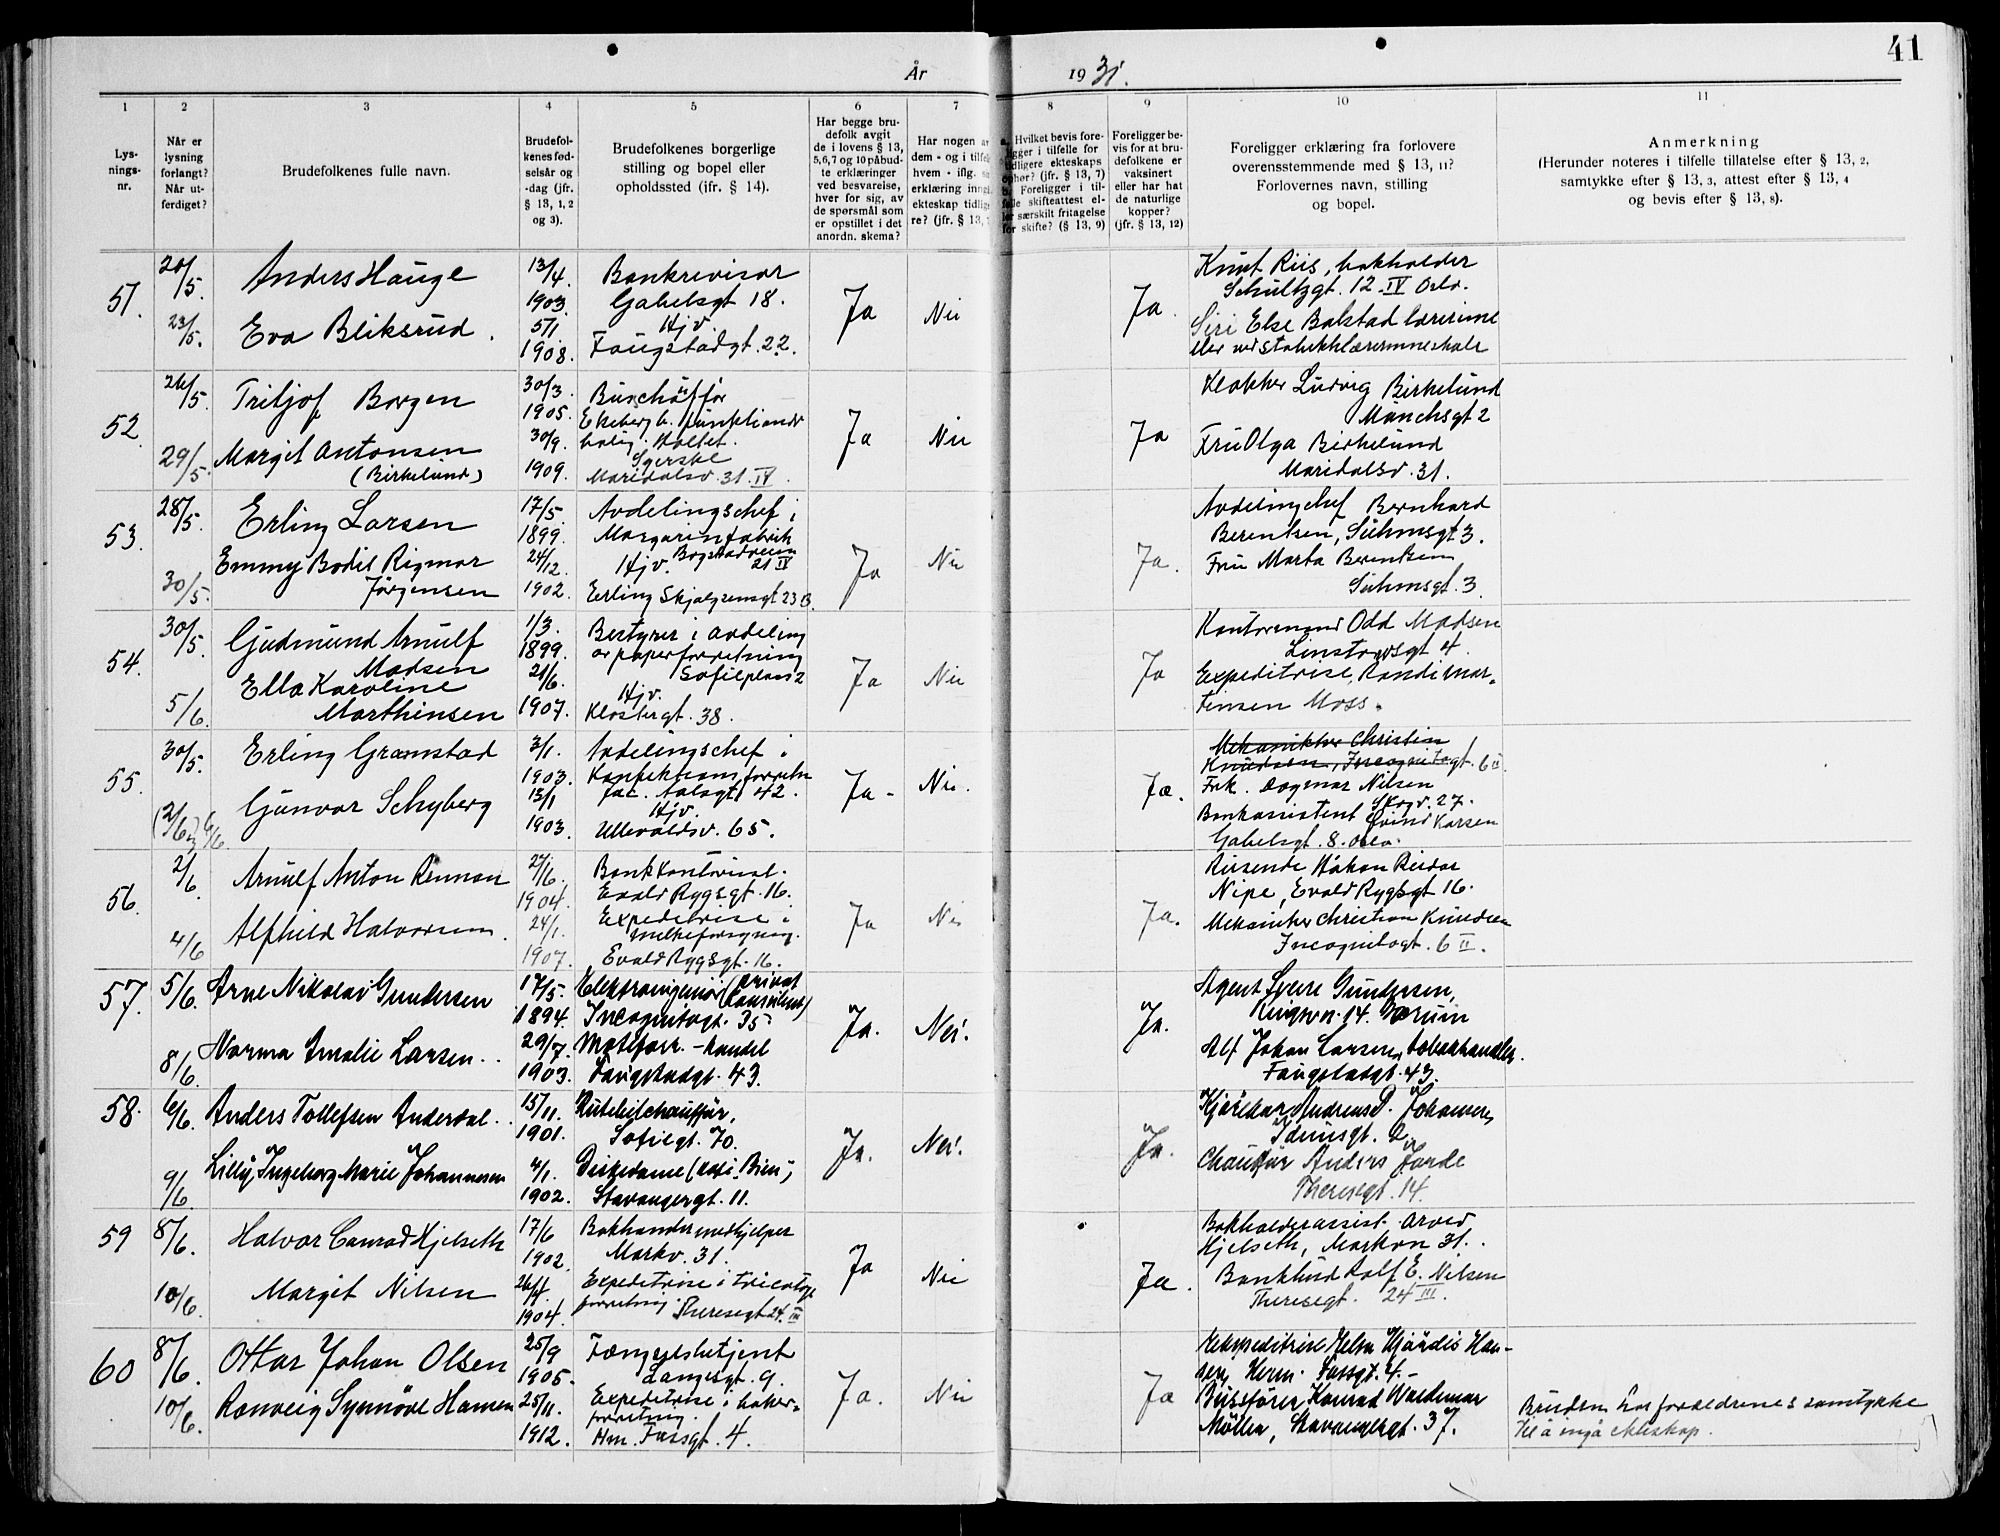 41
År 1931.
1
2
3
4
5
6
7
8
9
10
11
Lys-
nings-
nr.
Når er
lysning
forlangt?
Når ut-
ferdiget?
Brudefolkenes fulle navn.
Brudefol-
kenes fød-
selsår og
-dag (jfr.
§ 13, 1, 2
og 3).
Brudefolkenes borgerlige
stilling og bopel eller
opholdssted (ifr. § 14).
Har begge bru-
defolk avgit
de i lovens § 13,
5,6,7 og 10 påbud-
te erklæringer
ved besvarelse,
hver for sig, av
de spørsmål som
er opstillet i det
anordn. skema?
Har nogen a
dem - og i tilfe
hvem - iflg.
erklæring inng
ekteskap tidlig
re? (jfr. § 13,
Hvilket bevis fore-
ligger i tilfelle for
tidligere ekteskaps
ophør? (jfr. § 13, 7)
Foreligger i til-
felle skifteattest el-
ler særskilt fritagelse
for skifte? (§ 13, 9)
Foreligger be-
vis for at bru-
defolkene er
vaksinert
eller har hat
de naturlige
kopper?
(jfr. § 13, 12)
Foreligger erklæring fra forlovere
overensstemmende med § 13, 11?
Forlovernes navn, stilling
og bopel.
Anmerkning
(Herunder noteres i tilfelle tillatelse efter § 13, 2,
samtykke efter § 13, 3, attest efter § 13, 4
og bevis efter § 13, 8).
51.
20/5.
23/5.
Anders Hauge
Eva Bliksrud.
13/4.
1903.
5/1
1908.
Bankrevisor
Gabelsgt 18.
Hjv.
Faugstadgt. 22.
Ja
Nei
Ja.
Knut Riis, bokholder
Schultzgt. 12 IV Oslo.
Siri Else Bakstad lærerinne
elev ved
52.
26/5.
29/5.
Tritjof Borgen
Margit Antonsen
(Birkelund)
30/3.
1905.
30/9.
1909.
Buschåffør
Ekeberg b. funktionær
bolig. Holtet.
Maridalsv. 31 IV.
Ja
Nei
Ja
Klokker Ludvig Birkelund
Munchsgt 2
Fru Olga Birkelund
Maridalsv. 31.
53.
28/5.
30/5.
Erling Larsen
Emmy Bodil Rigmor
Jørgensen
17/5.
1899.
24/12.
1902.
Avdelingschef i
Margarinfabrik
Hjv. Bogstadveien
21 IV
Erling Skjalgsensgt 23 B.
Ja
Nei
Ja.
Avdelingchef Bernhard
Berentsen, Suhmsgt 3.
Fru Marta Berentsen
Suhmsgt. 3.
54.
30/5.
5/6.
Gudmund Arnulf
Madsen
Ella Karoline
Marthinsen
1/3.
1899.
21/6.
1907.
Bestyrer i avdeling
av papirforretning
Sofiepl 2
Hjv.
Klostergt. 38.
Ja
Nei
Ja
Kontormand Odd Madsen
Linstowsgt 4.
Expeditrise, Randi Mar-
tinsen Moss.
55.
30/5.
(2/6) 6/6.
Erling Gramstad
Gunvor Schyberg
3/1.
1903.
15/1
1903.
Avdelingschef i
Konfeksjons forretn
Jac. Aalsgt. 42.
Hjv.
Ullevoldsv. 65.
Ja -
Nei.
Ja.
Mekaniker Christin
Knudsen, Incognitogt. 6 II.
Frk. Dagmar Nilsen
Skogv. 27.
Bankassistent Eivind Karsen
Gabelsgt. 8. Oslo.
56.
2/6.
4/6
Arnulf Anton Renman
Alfhild Halvorsen.
27/6.
1904.
24/1.
1907.
Bankkontorist.
Evald Rygsgt. 16.
Expeditrise i
melkeforsyning.
Evald Rygsgt. 16.
Ja
Nei
Ja.
Reisende Håkon Reidar
Nipe, Evald Rygsgt 16.
Mekaniker Christian Knudsen
Incognitogt. 6 II.
57.
5/6.
8/6.
Arne Nikolai Gundersen
Norma Amalie Larsen.
17/5.
1894.
29/7.
1903.
Elektroingeniør (privat
konsulent)
Incognitogt. 35
Moteforr. - handel
Faugstadgt. 43.
Ja.
Nei.
Ja.
Agent Sverre Gundersen,
Ringvn. 14. Bærum
Alf Johan Larsen, tobakhandler.
Faugstadgt. 43.
58.
6/6.
9/6
Anders Tollefsen Anderdal.
Lilly Ingeborg Marie Johannesen
15/11.
1901.
4/1.
1902.
Rutebilchauffør,
Sofiegt. 70.
Diskedame
Stavangergt. 11.
Ja.
Nei.
Ja.
Kjørekar Andreas P. Johansen,
Idunsgt. 2.
Chauffør Anders Jorde
Theresegt. 14.
59
8/6.
10/6.
Halvor Conrad Hjelseth
Margit Nilsen
17/6
1902.
26/4.
1904.
Bokhandermedhjelper
Markv. 31.
Expeditrise i tricotage
forretning. Theresegt 24. III
Ja
Nei
Ja.
Bokholderassist. Arved
Hjelseth, Markvn 31.
Bankbud Rolf E. Nilsen
Theresegt. 24 III.
60
8/6.
10/6.
Ottar Johan Olsen
Ranveig Synnøve Hansen
25/9
1905.
25/11.
1912.
Fængselsbetjent
Langesgt. 9.
Expeditrise i baker-
forretning.
Hm. Fossgt. 4.
Ja.
Nei
Ja
Ekspeditrise Helen Hjørdis Han-
sen, Herm. Fossgt. 4. -
Bussfører Konrad Waldemar
Møller, Stavangergt. 37.
Bruden har foreldrenes samtykke
til å ingå ekteskap.